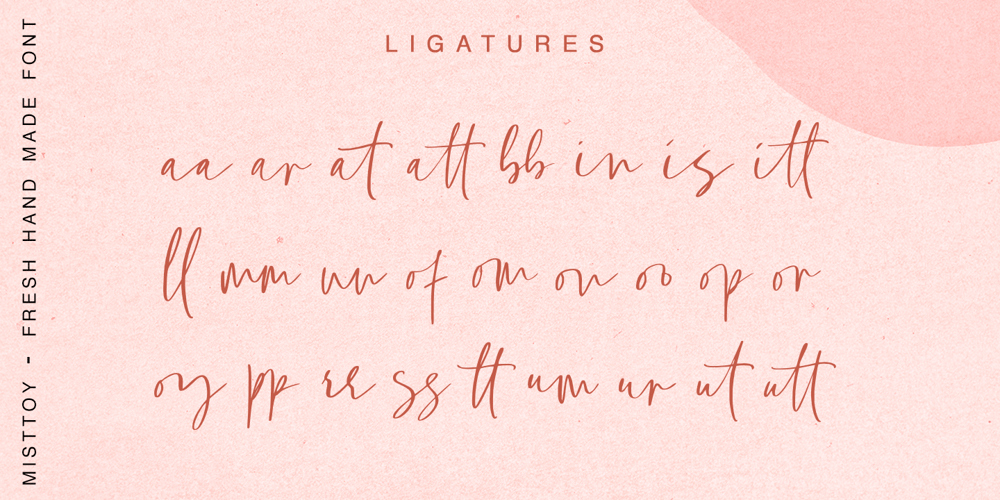 LIGATURES
aa ar at att bb in is itt
ll mm nn of om on oo op or
oy pp rr ss tt um ur ut utt
MISTTOY - FRESH HAND MADE FONT